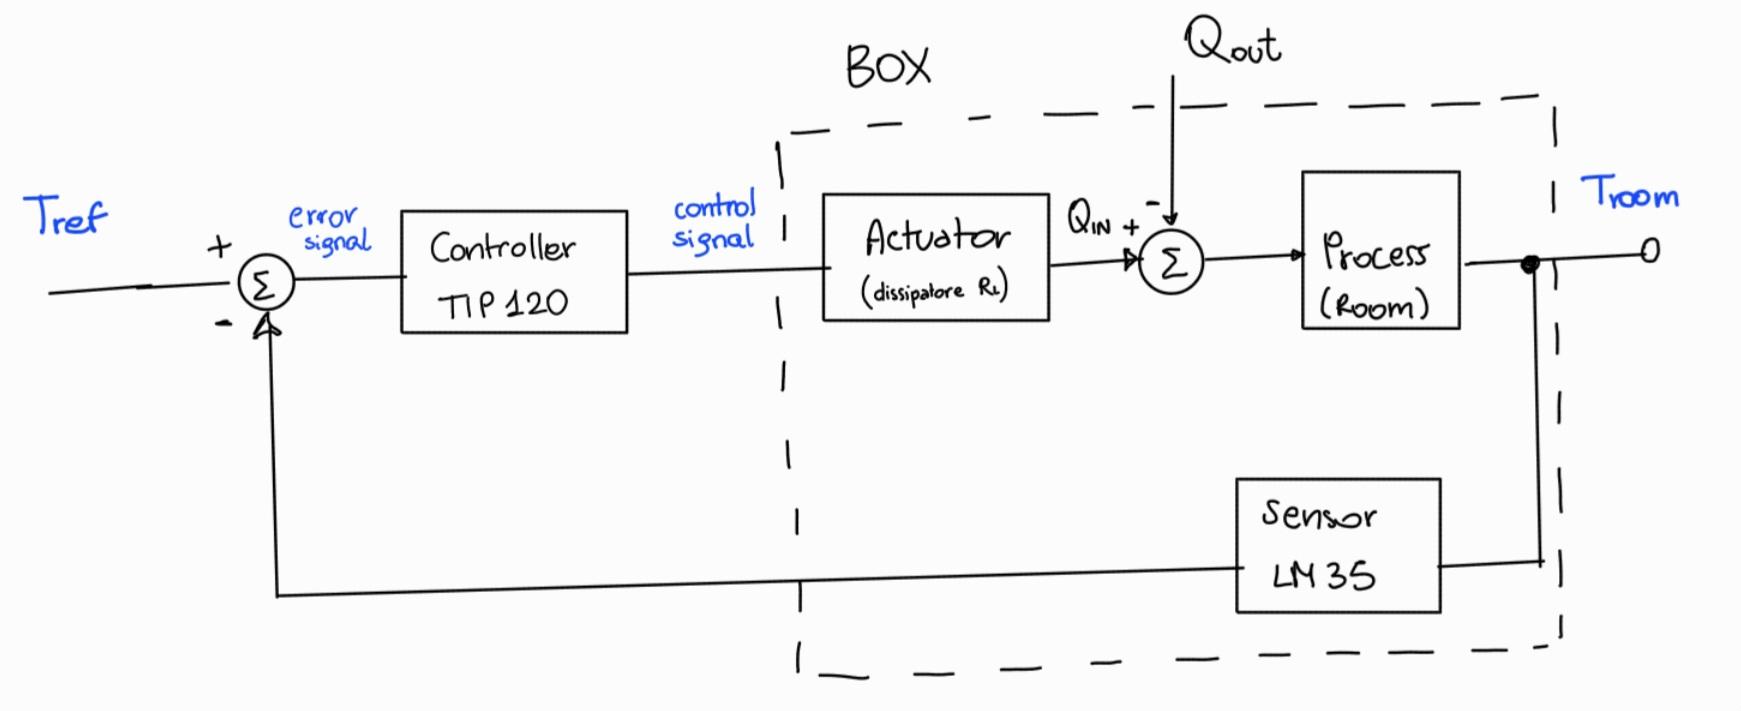 BOX
Qout
Tref
+
-
Σ
error
signal
Controller
TIP 120
control
signal
Actuator
(dissipatore RL)
QIN +
-
Σ
Process
(Room)
Troom
Sensor
LM 35